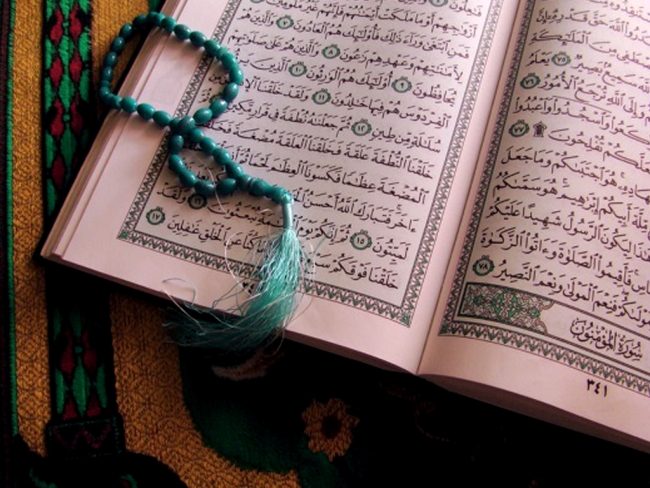 ٱللَّهَ حَقَّ قَدْرِهِۦٓ
مِنَ ٱلْمَلَٰٓئِكَةِ
سَمِيعٌۢ بَصِيرٌ ٧٥ يَعْلَمُ
وَإِلَى ٱللَّهِ تُرْجَعُ ٱلْأُمُورُ ٧٦
وَٱسْجُدُوا۟ وَٱعْبُدُوا۟
تُفْلِحُونَ ۩ ٧٧
هُوَ ٱجْتَبَىٰكُمْ وَمَا جَعَلَ
مِّلَّةَ أَبِيكُمْ إِبْرَٰهِيمَ هُوَ سَمَّىٰكُمُ
هَٰذَا لِيَكُونَ ٱلرَّسُولُ شَهِيدًا عَلَيْكُمْ
فَأَقِيمُوا۟ ٱلصَّلَوٰةَ وَءَاتُوا۟ ٱلزَّكَوٰةَ
فَنِعْمَ ٱلْمَوْلَىٰ وَنِعْمَ ٱلنَّصِيرُ ٧٨
سُورَةُ المُؤْمِنُونَ
٣٤١
أَزْوَٰجِهِمْ أَوْ مَا مَلَكَتْ أَيْمَٰنُهُمْ فَإِنَّهُمْ غَيْرُ مَلُومِينَ
فَمَنِ ٱبْتَغَىٰ وَرَآءَ ذَٰلِكَ فَأُو۟لَٰٓئِكَ هُمُ ٱلْعَادُونَ ٧ وَٱلَّذِينَ هُمْ
لِأَمَٰنَٰتِهِمْ وَعَهْدِهِمْ رَٰعُونَ ٨ وَٱلَّذِينَ هُمْ عَلَىٰ صَلَوَٰتِهِمْ
يُحَافِظُونَ ٩ أُو۟لَٰٓئِكَ هُمُ ٱلْوَٰرِثُونَ ١٠ ٱلَّذِينَ
ٱلْفِرْدَوْسَ هُمْ فِيهَا خَٰلِدُونَ ١١ وَلَقَدْ خَلَقْنَا ٱلْإِنسَٰنَ
سُلَٰلَةٍ مِّن طِينٍ ١٢ ثُمَّ جَعَلْنَٰهُ نُطْفَةً فِى قَرَارٍ
خَلَقْنَا ٱلنُّطْفَةَ عَلَقَةً فَخَلَقْنَا ٱلْعَلَقَةَ مُضْغَةً فَخَلَقْنَا
ٱلْمُضْغَةَ عِظَٰمًا فَكَسَوْنَا ٱلْعِظَٰمَ لَحْمًا ثُمَّ
ءَاخَرَ فَتَبَارَكَ ٱللَّهُ أَحْسَنُ
لَمَيِّتُونَ ١٥ ثُمَّ إِنَّكُمْ يَوْمَ تُبْعَثُونَ ١٦ وَلَقَدْ
خَلَقْنَا فَوْقَكُمْ وَمَا كُنَّا عَنِ ٱلْخَلْقِ غَٰفِلِينَ ١٧